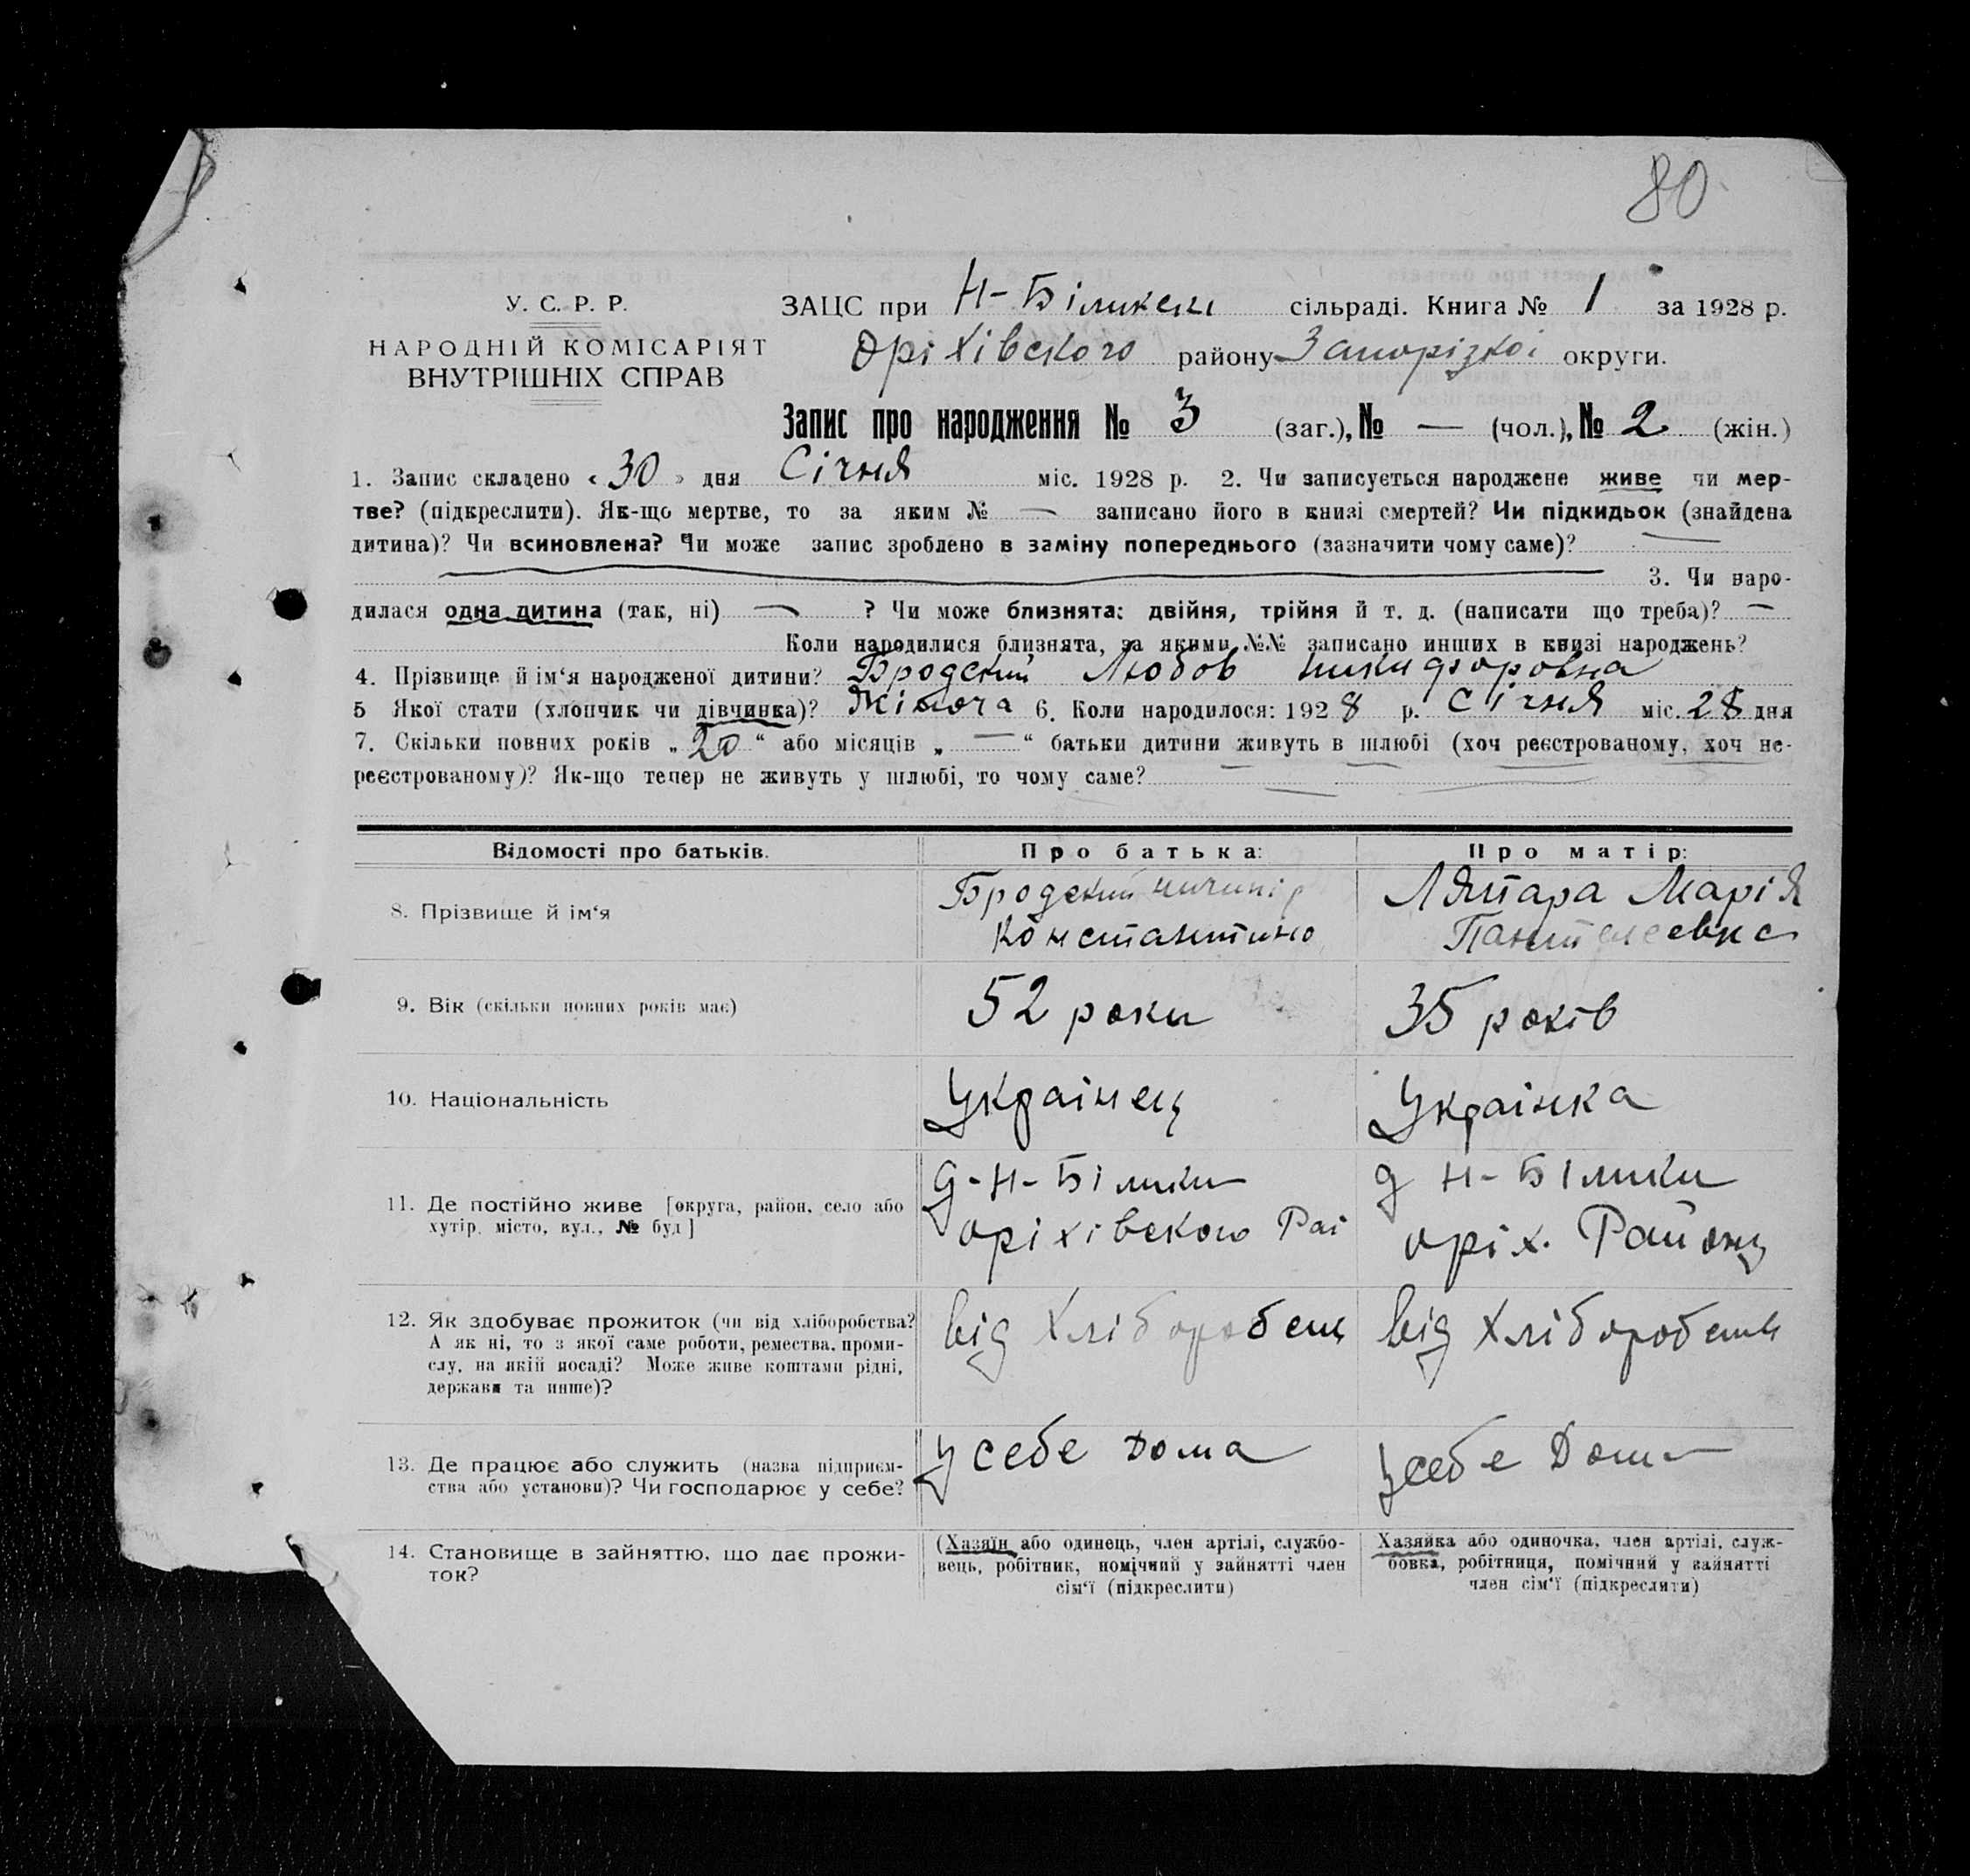 80
У. С. Р. Р.
НАРОДНІЙ КОМІСАРІЯТ
ВНУТРІШНІХ СПРАВ
ЗАЦС при Н-Біликен сільраді. Книга № 1 за 1928 р.
Оріхівского району Запорізкоі округи.
Запис про народження № 3 (заг.), № — (чол.), № 2 (жін.)
1. Запис складено « 30 » дня Січня міс. 1928 р. 2. Чи записується народжене живе чи мер-
тве? (підкреслити). Як-що мертве, то за яким № — записано його в книзі смертей? Чи підкидьок (знайдена
дитина)? Чи всиновлена? Чи може запис зроблено в заміну попереднього (зазначити чому саме)? —
3. Чи наро-
дилася одна дитина (так, ні) — ? Чи може близнята: двійня, трійня й т. д. (написати що треба)? —
Коли народилися близнята, за якими №№ записано инших в книзі народжень?
4. Прізвище й ім‘я народженої дитини? Бродский Любов Никифоровна
5 Якої стати (хлопчик чи дівчинка)? Жіноча 6. Коли народилося: 1928 р. Січня міс. 28 дня
7. Скільки повних років „ 20 “ або місяців „ — “ батьки дитини живуть в шлюбі (хоч реєстрованому, хоч не-
реєстрованому)? Як-що тепер не живуть у шлюбі, то чому саме?
Відомості про батьків.
Про батька:
Про матір:
8. Прізвище й ім‘я
Бродский
Константино
Ляпара Марія
Пантелеевна
9. Вік (скільки повних років має)
52 роки
35 років
10. Національність
Українец
Українка
11. Де постійно живе [округа, район, село або
хутір, місто, вул., № буд]
д-Н-Білики
оріхівского Раі
д Н-Білики
оріх. Району
12. Як здобуває прожиток (чи від хліборобства?
А як ні, то з якої саме роботи, ремества, проми-
слу, на якій посаді? Може живе коштами рідні,
держави та инше)?
від Хлібороб
від Хлібороб
13. Де працює або служить (назва підприєм-
ства або установи)? Чи господарює у себе?
у себе дома
у себе Дома
14. Становище в зайняттю, що дає прожи-
ток?
(Хазяїн або одинець, член артілі, службо-
вець, робітник, помічний у зайнятті член
сім‘ї (підкреслити)
Хазяйка або одиночка, член артілі, служ-
бовка, робітниця, помічний у зайнятті
член сім‘ї (підкреслити)